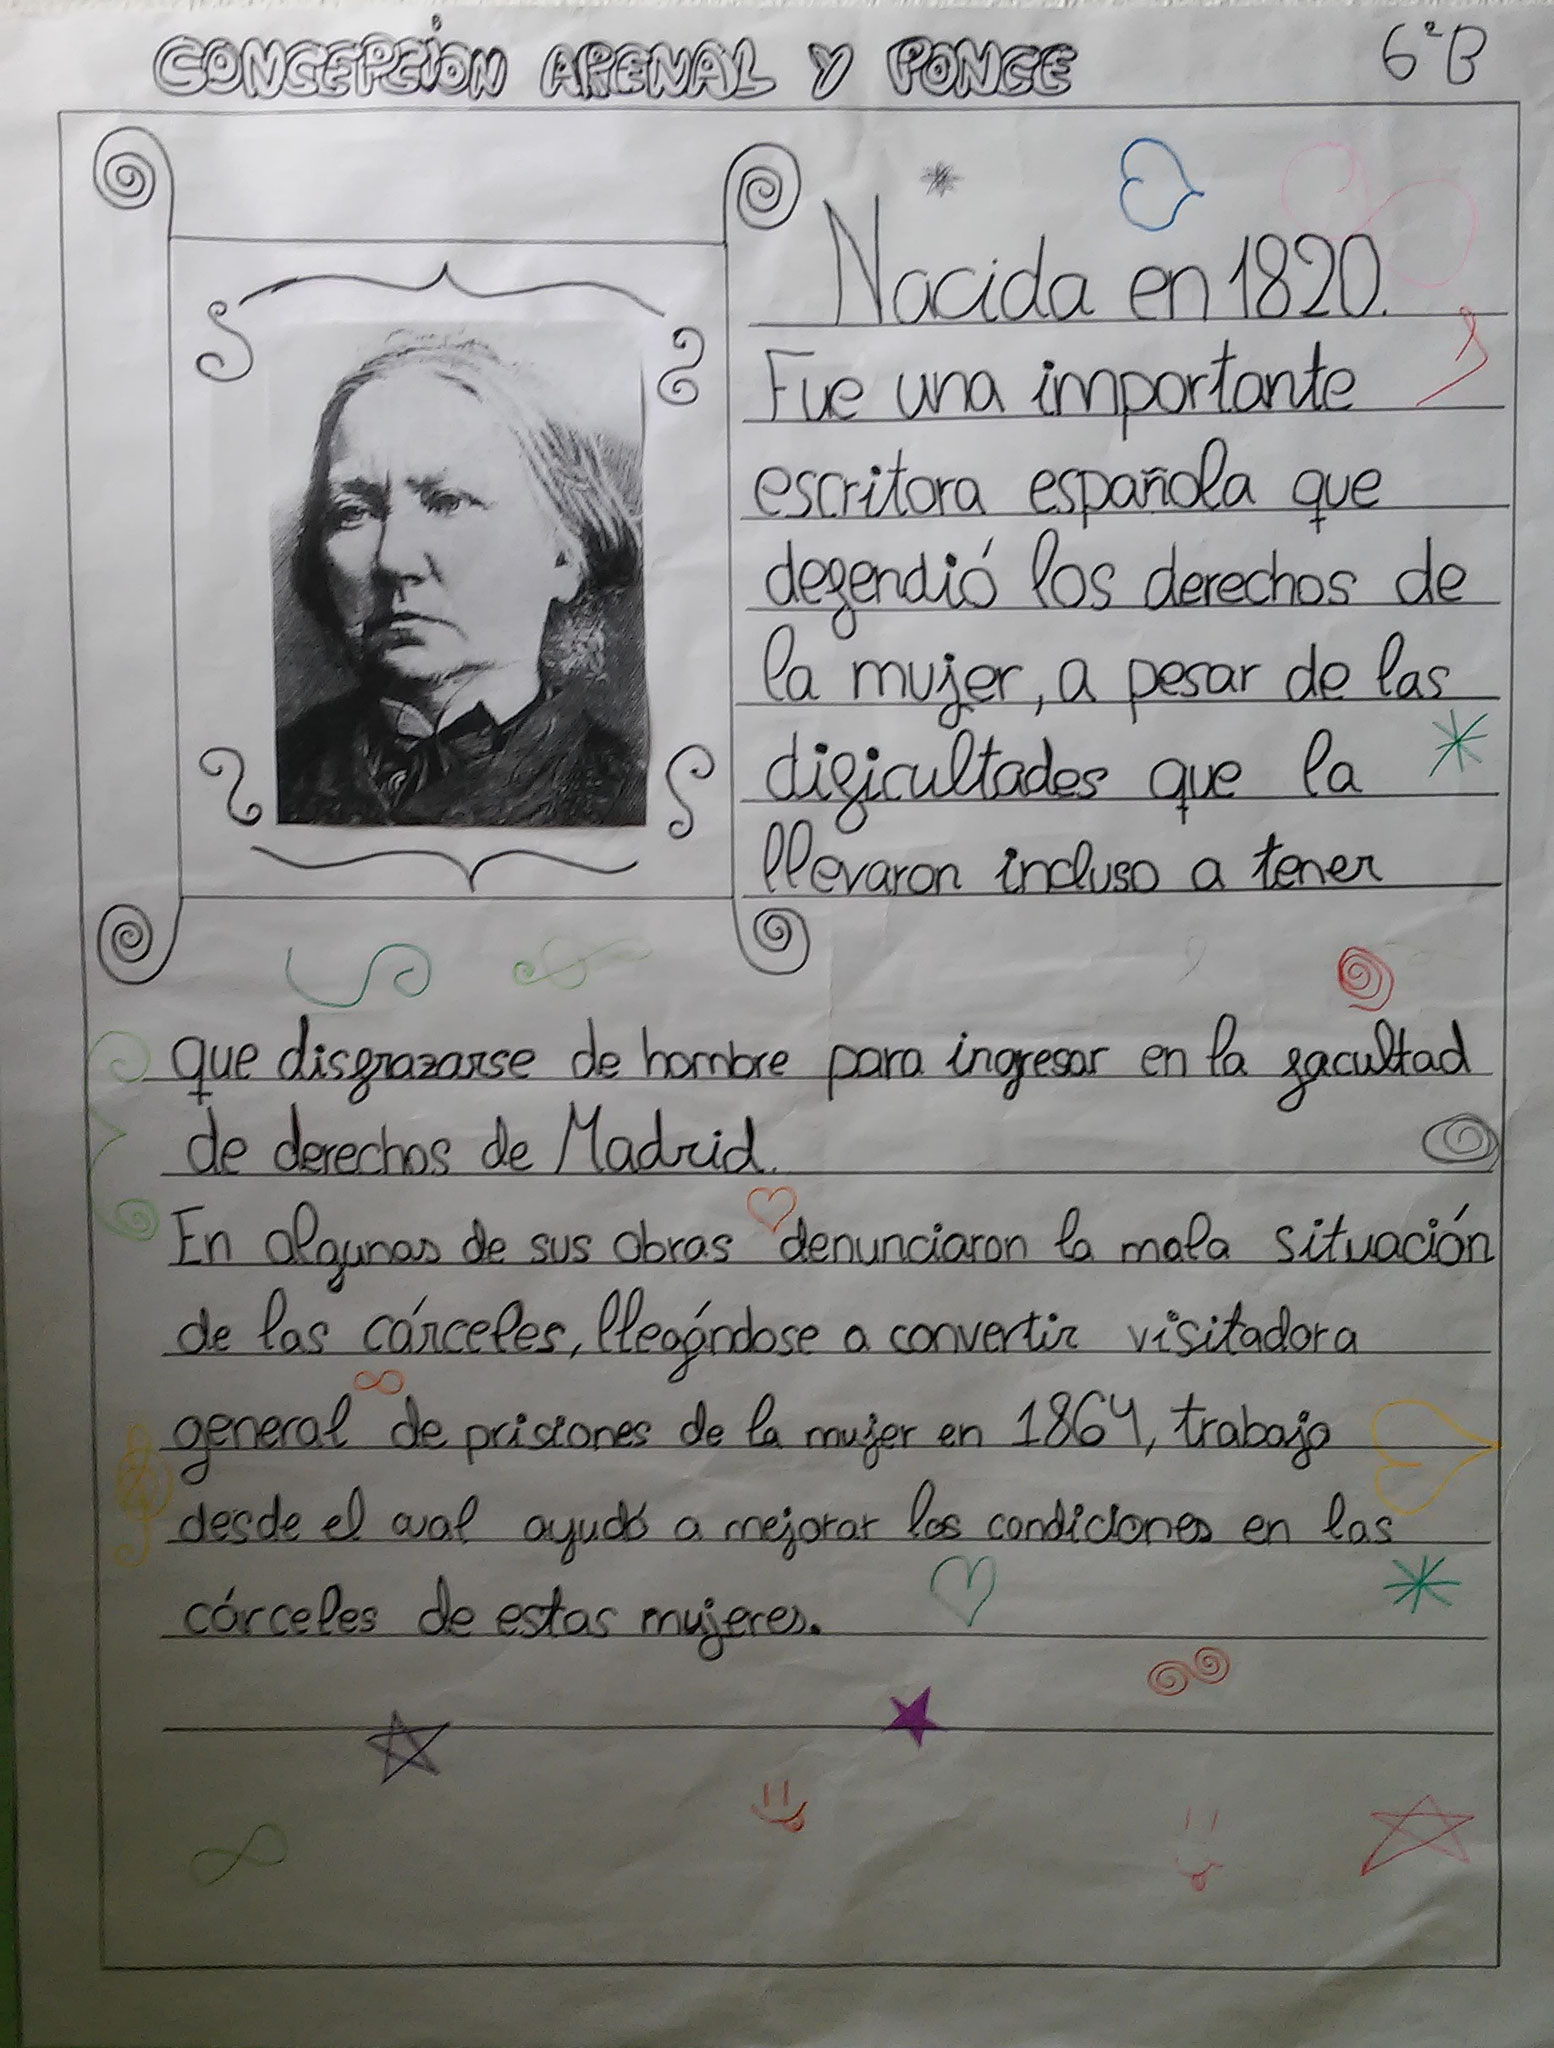 CONCEPCIÓN ARENAL Y PONCE
6ºB
Nacida en 1820.
Fue una importante
escritora española que
defendió los derechos de
la mujer, a pesar de las
dificultades que la
llevaron incluso a tener
que disfrazarse de hombre para ingresar en la facultad
de derechos de Madrid.
En algunas de sus obras denunciaron la mala situación
de las cárceles, llegándose a convertir visitadora
general de prisiones de la mujer en 1864, trabajo
desde el cual ayudó a mejorar las condiciones en las
cárceles de estas mujeres.